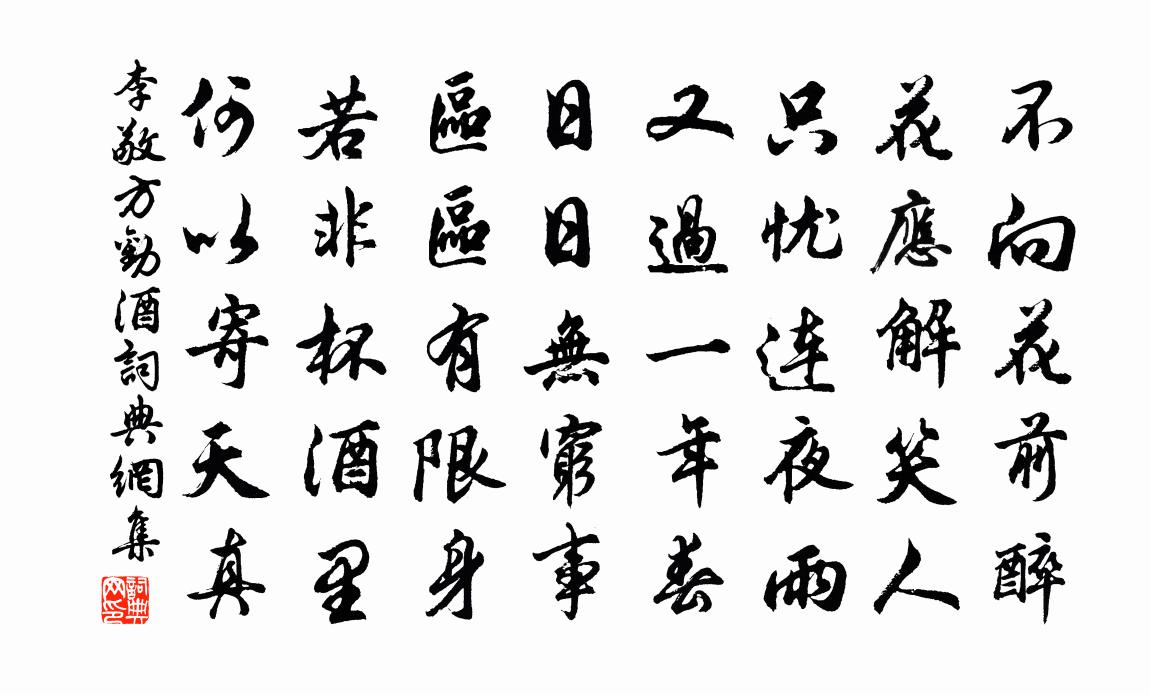 不向花前醉
花應解笑人
只忧连夜雨
又過一年春
日日無窮事
區區有限身
若非杯酒里
何以寄天真
李敬方勸酒詞典網集
詞典網印